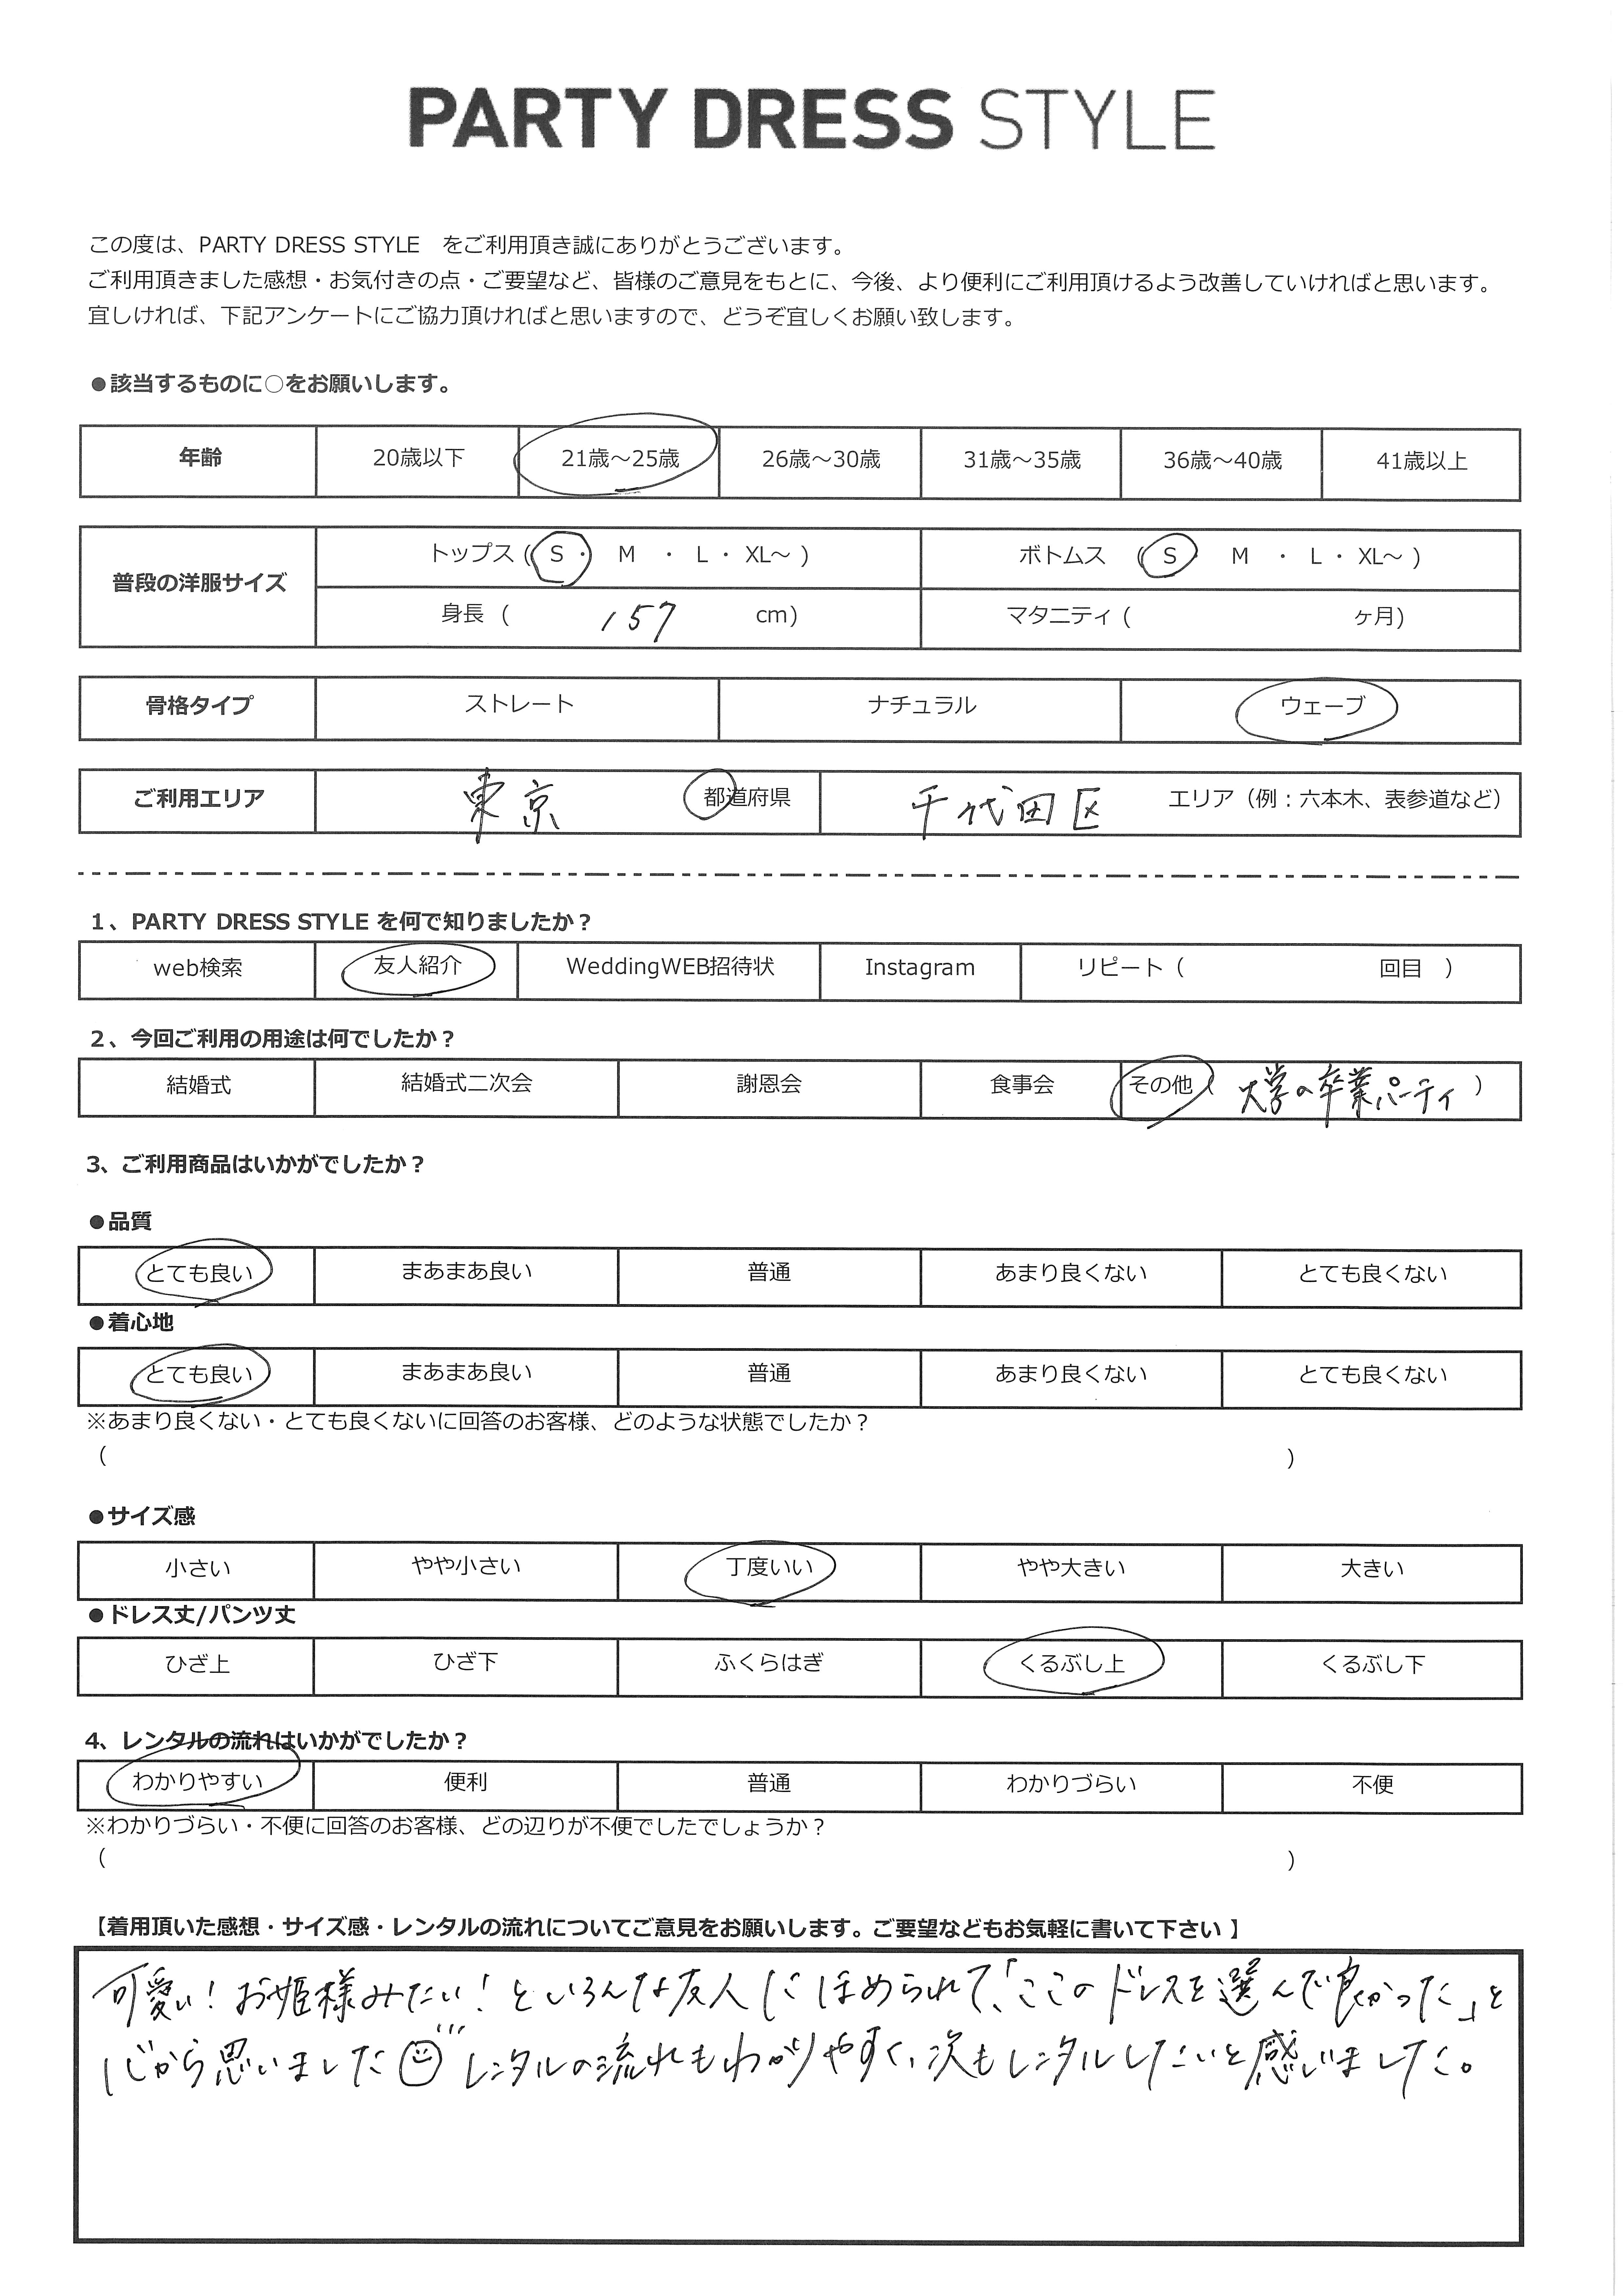 PARTY DRESS STYLE
この度は、PARTY DRESS STYLE　をご利用頂き誠にありがとうございます。
ご利用頂きました感想・お気付きの点・ご要望など、皆様のご意見をもとに、今後、より便利にご利用頂けるよう改善していければと思います。
宜しければ、下記アンケートにご協力頂ければと思いますので、どうぞ宜しくお願い致します。
●該当するものに○をお願いします。
年齢 20歳以下 21歳～25歳 26歳～30歳 31歳～35歳 36歳～40歳 41歳以上
普段の洋服サイズ
トップス (S ・ M ・ L ・ XL～ ) ボトムス (S M ・ L ・ XL～ )
身長 ( 157 cm) マタニティ ( ヶ月)
骨格タイプ ストレート ナチュラル ウェーブ
ご利用エリア 東京 都道府県 千代田区 エリア（例：六本木、表参道など）
1、PARTY DRESS STYLE を何で知りましたか？
web検索 友人紹介 WeddingWEB招待状 Instagram リピート（ 回目 ）
2、今回ご利用の用途は何でしたか？
結婚式 結婚式二次会 謝恩会 食事会 その他( 大学の卒業パーティ )
3、ご利用商品はいかがでしたか？
●品質
とても良い まあまあ良い 普通 あまり良くない とても良くない
●着心地
とても良い まあまあ良い 普通 あまり良くない とても良くない
※あまり良くない・とても良くないに回答のお客様、どのような状態でしたか？
( )
●サイズ感
小さい やや小さい 丁度いい やや大きい 大きい
●ドレス丈/パンツ丈
ひざ上 ひざ下 ふくらはぎ くるぶし上 くるぶし下
4、レンタルの流れはいかがでしたか？
わかりやすい 便利 普通 わかりづらい 不便
※わかりづらい・不便に回答のお客様、どの辺りが不便でしたでしょうか？
( )
【着用頂いた感想・サイズ感・レンタルの流れについてご意見をお願いします。ご要望などもお気軽に書いて下さい 】
可愛い！お姫様みたい！といろんな友人にほめられて、「ここのドレスを選んで良かった」と
心から思いました レンタルの流れもわかりやすく、次もレンタルしたいと感じました。